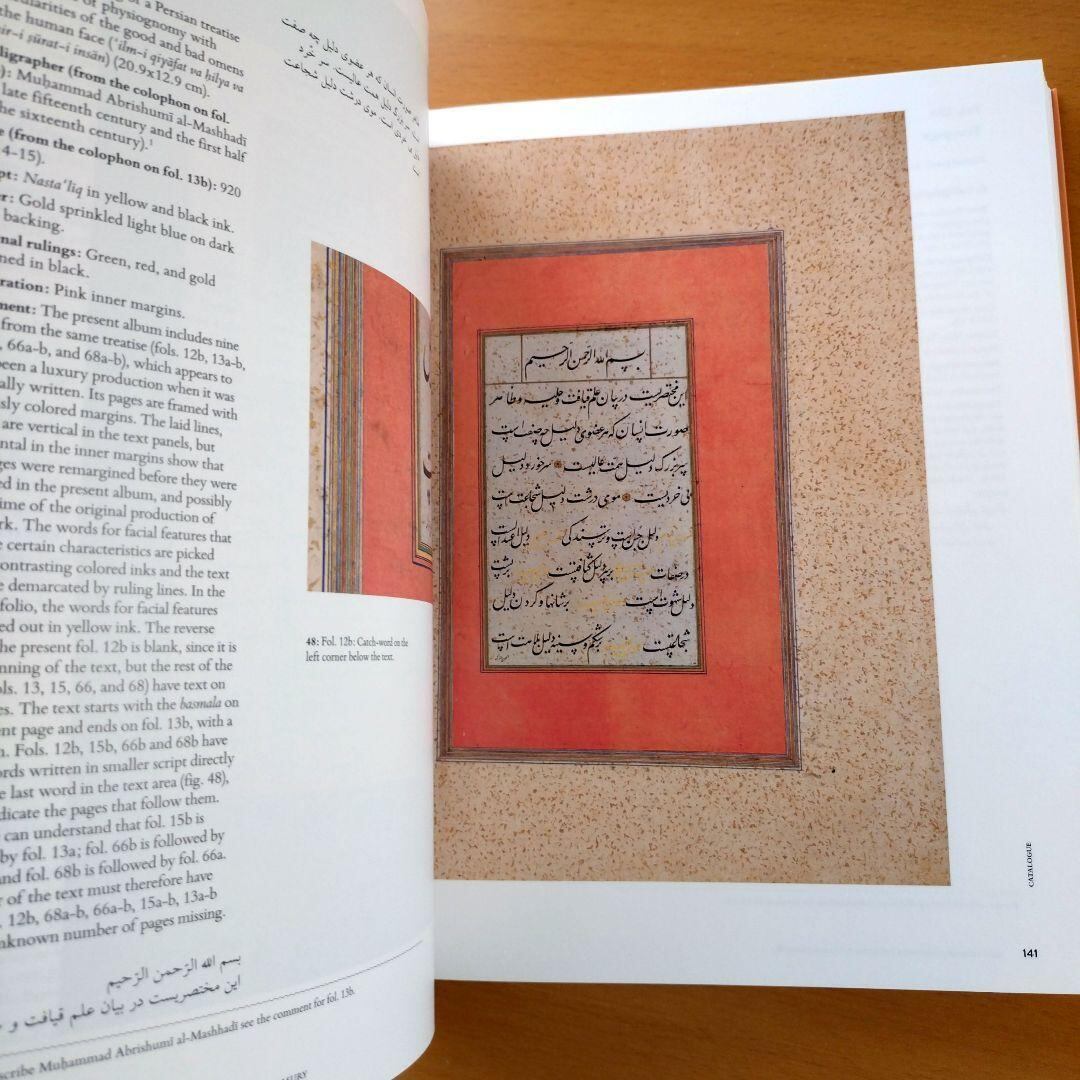 of a Persian treatise
of physiognomy with
ularities of the good and bad omens
the human face (ʿilm-i qiyāfat va ḥilya va
ir-i ṣūrat-i insān) (20.9x12.9 cm).
lligrapher (from the colophon on fol.
): Muḥammad Abrishumī al-Mashhadī
late fifteenth century and the first half
he sixteenth century).¹
e (from the colophon on fol. 13b): 920
4–15).
pt: Nastaʿliq in yellow and black ink.
er: Gold sprinkled light blue on dark
backing.
nal rulings: Green, red, and gold
ned in black.
ration: Pink inner margins.
ment: The present album includes nine
from the same treatise (fols. 12b, 13a-b,
, 66a-b, and 68a-b), which appears to
been a luxury production when it was
ally written. Its pages are framed with
sly colored margins. The laid lines,
are vertical in the text panels, but
ntal in the inner margins show that
ges were remargined before they were
ed in the present album, and possibly
ime of the original production of
rk. The words for facial features that
e certain characteristics are picked
contrasting colored inks and the text
e demarcated by ruling lines. In the
folio, the words for facial features
ed out in yellow ink. The reverse
he present fol. 12b is blank, since it is
nning of the text, but the rest of the
ols. 13, 15, 66, and 68) have text on
es. The text starts with the basmala on
nt page and ends on fol. 13b, with a
n. Fols. 12b, 15b, 66b and 68b have
ords written in smaller script directly
e last word in the text area (fig. 48),
dicate the pages that follow them.
can understand that fol. 15b is
by fol. 13a; fol. 66b is followed by
and fol. 68b is followed by fol. 66a.
r of the text must therefore have
. 12b, 68a-b, 66a-b, 15a-b, 13a-b
nknown number of pages missing.
بسم الله الرّحمن الرّحیم
این مختصریست در بیان علم قیافت و
scribe Muḥammad Abrishumī al-Mashhadī see the comment for fol. 13b.
SURY
صورت انسان که هر عضوی دلیل چه صفت
بزرگ دلیل همت عالیست. سر خُرد
است. موی درشت دلیل شجاعت
48: Fol. 12b: Catch-word on the
left corner below the text.
بسم الله الرحمن الرحیم
این مختصریست در بیان علم قیافت و حلیه و ظاهر
صورت انسان که هر عضوی دلیل چه صفت است
سر بزرگ دلیل همت عالیست سر خورد دلیل
بی خردیست موی درشت دلیل شجاعت است
دلیل جبن است و سر تیزندگی دلیل
در صفات بر پر دلیل کثافتست
دلیل شهوت است بر شانها و گردن دلیل
شجاعتست بر شکم و سینه دلیل بلاهت است
CATALOGUE
141